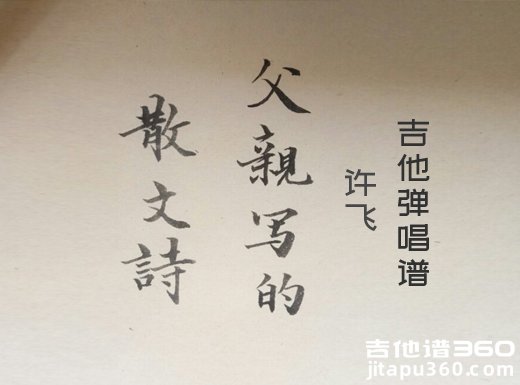 父親写的
散文詩
吉他弹唱谱
许飞
吉他谱360
jitapu360.com